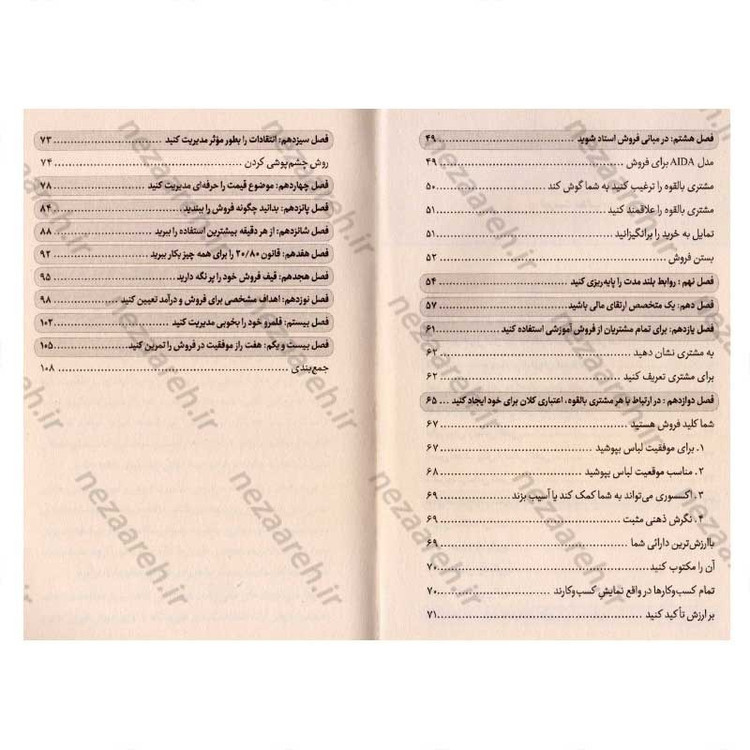 فصل هشتم: در مبانی فروش استاد شوید ۴۹
مدل AIDA برای فروش ۴۹
مشتری بالقوه را ترغیب کنید به شما گوش کند ۵۰
مشتری بالقوه را علاقمند کنید ۵۱
تمایل به خرید را برانگیزانید ۵۱
بستن فروش ۵۲
فصل نهم : روابط بلند مدت را پایه‌ریزی کنید ۵۴
فصل دهم: یک متخصص ارتقای مالی باشید ۵۷
فصل یازدهم: برای تمام مشتریان از فروش آموزشی استفاده کنید ۶۱
به مشتری نشان دهید ۶۲
برای مشتری تعریف کنید ۶۲
فصل دوازدهم : در ارتباط با هر مشتری بالقوه، اعتباری کلان برای خود ایجاد کنید ۶۵
شما کلید فروش هستید ۶۷
۱. برای موفقیت لباس بپوشید ۶۷
۲. مناسب موقعیت لباس بپوشید ۶۸
۳. اکسسوری می‌تواند به شما کمک کند یا آسیب بزند ۶۹
۴. نگرش ذهنی مثبت ۶۹
باارزش‌ترین دارائی شما ۶۹
آن را مکتوب کنید ۷۰
تمام کسب‌وکارها در واقع نمایش کسب‌وکارند ۷۰
بر ارزش تأکید کنید ۷۱
فصل سیزدهم: انتقادات را بطور مؤثر مدیریت کنید ۷۳
روش چشم‌پوشی کردن ۷۴
فصل چهاردهم: موضوع قیمت را حرفه‌ای مدیریت کنید ۷۸
فصل پانزدهم: بدانید چگونه فروش را ببندید ۸۴
فصل شانزدهم: از هر دقیقه بیشترین استفاده را ببرید ۸۸
فصل هفدهم: قانون ۲۰/۸۰ را برای همه چیز بکار ببرید ۹۲
فصل هجدهم: قیف فروش خود را پر نگه دارید ۹۵
فصل نوزدهم: اهداف مشخصی برای فروش و درآمد تعیین کنید ۹۸
فصل بیستم: قلمرو خود را بخوبی مدیریت کنید ۱۰۲
فصل بیست و یکم: هفت راز موفقیت در فروش را تمرین کنید ۱۰۵
جمع‌بندی ۱۰۸
nezaareh.ir